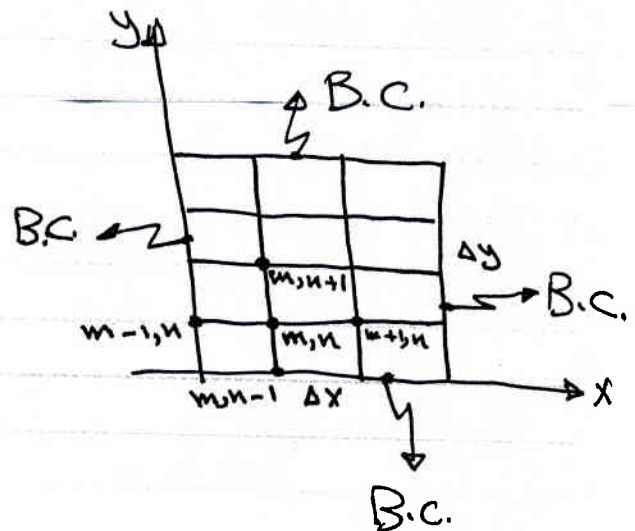 y
B.C.
B.C.
Δy
m,n+1
B.C.
m-1,n
m,n
m+1,n
m,n-1
Δx
x
B.C.